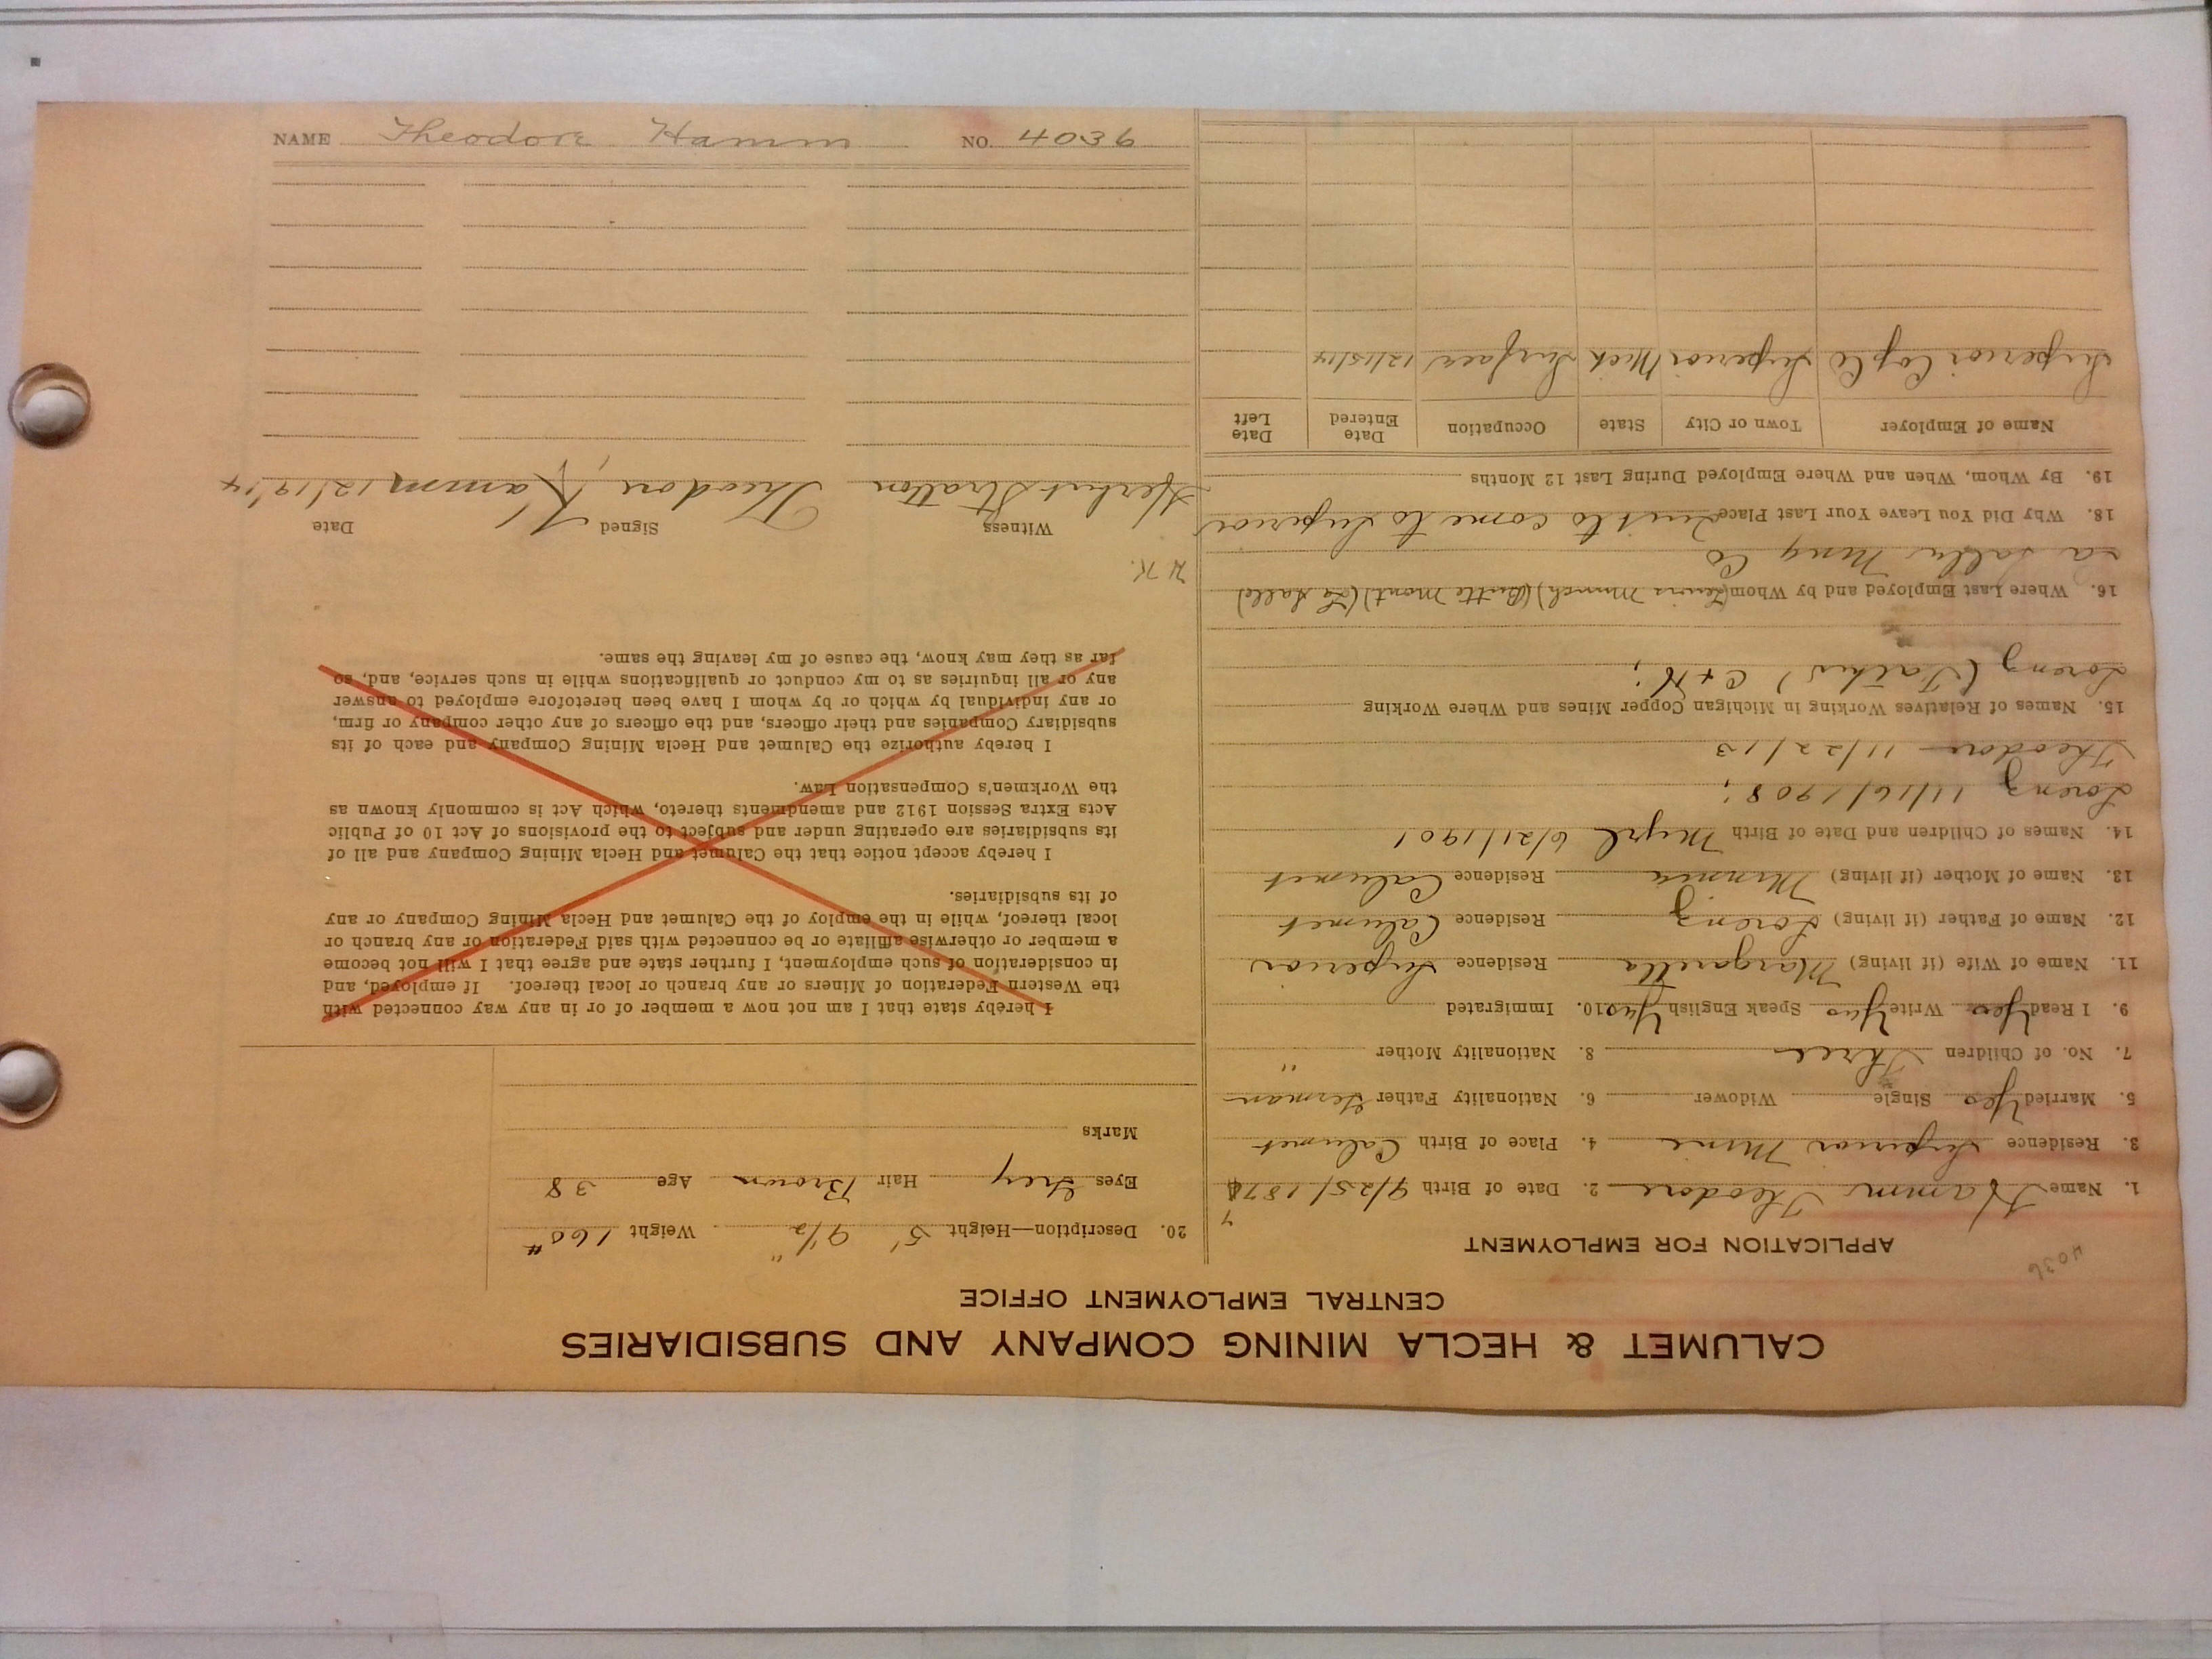 CALUMET & HECLA MINING COMPANY AND SUBSIDIARIES
CENTRAL EMPLOYMENT OFFICE
4036
APPLICATION FOR EMPLOYMENT
1. Name Hamm Theodore 2. Date of Birth 9/25/187
3. Residence Superior Mine 4. Place of Birth Calumet
5. Married Yes Single Widower 6. Nationality Father German
7. No. of Children Three 8. Nationality Mother "
9. I Read Yes Write Yes Speak English Yes 10. Immigrated
11. Name of Wife (if living) Margaretta Residence Superior
12. Name of Father (if living) Lorenz Residence Calumet
13. Name of Mother (if living) Minnie Residence Calumet
14. Names of Children and Date of Birth Myrl 6/21/1901
Lorenz 11/16/1908;
Theodore 11/22/13
15. Names of Relatives Working in Michigan Copper Mines and Where Working
Lorenz (Father) C & H;
16. Where Last Employed and by Whom (Butte Mont) (La Salle)
La Salle Mng Co
18. Why Did You Leave Your Last Place Quit to come to Superior
19. By Whom, When and Where Employed During Last 12 Months
Name of Employer Town or City State Occupation Date Entered Date Left
Superior Cop Co Superior Mich Surface 12/15/14
20. Description—Height 5' 9 1/2" Weight 160#
Eyes Grey Hair Brown Age 38
Marks
I hereby state that I am not now a member of or in any way connected with
the Western Federation of Miners or any branch or local thereof. If employed, and
in consideration of such employment, I further state and agree that I will not become
a member or otherwise affiliate or be connected with said Federation or any branch or
local thereof, while in the employ of the Calumet and Hecla Mining Company or any
of its subsidiaries.
I hereby accept notice that the Calumet and Hecla Mining Company and all of
its subsidiaries are operating under and subject to the provisions of Act 10 of Public
Acts Extra Session 1912 and amendments thereto, which Act is commonly known as
the Workmen's Compensation Law.
I hereby authorize the Calumet and Hecla Mining Company and each of its
subsidiary Companies and their officers, and the officers of any other company or firm,
or any individual by which or by whom I have been heretofore employed to answer
any or all inquiries as to my conduct or qualifications while in such service, and, so
far as they may know, the cause of my leaving the same.
Witness Signed Date
Herbert Stratton Theodore Hamm 12/19/14
NAME Theodore Hamm NO. 4036